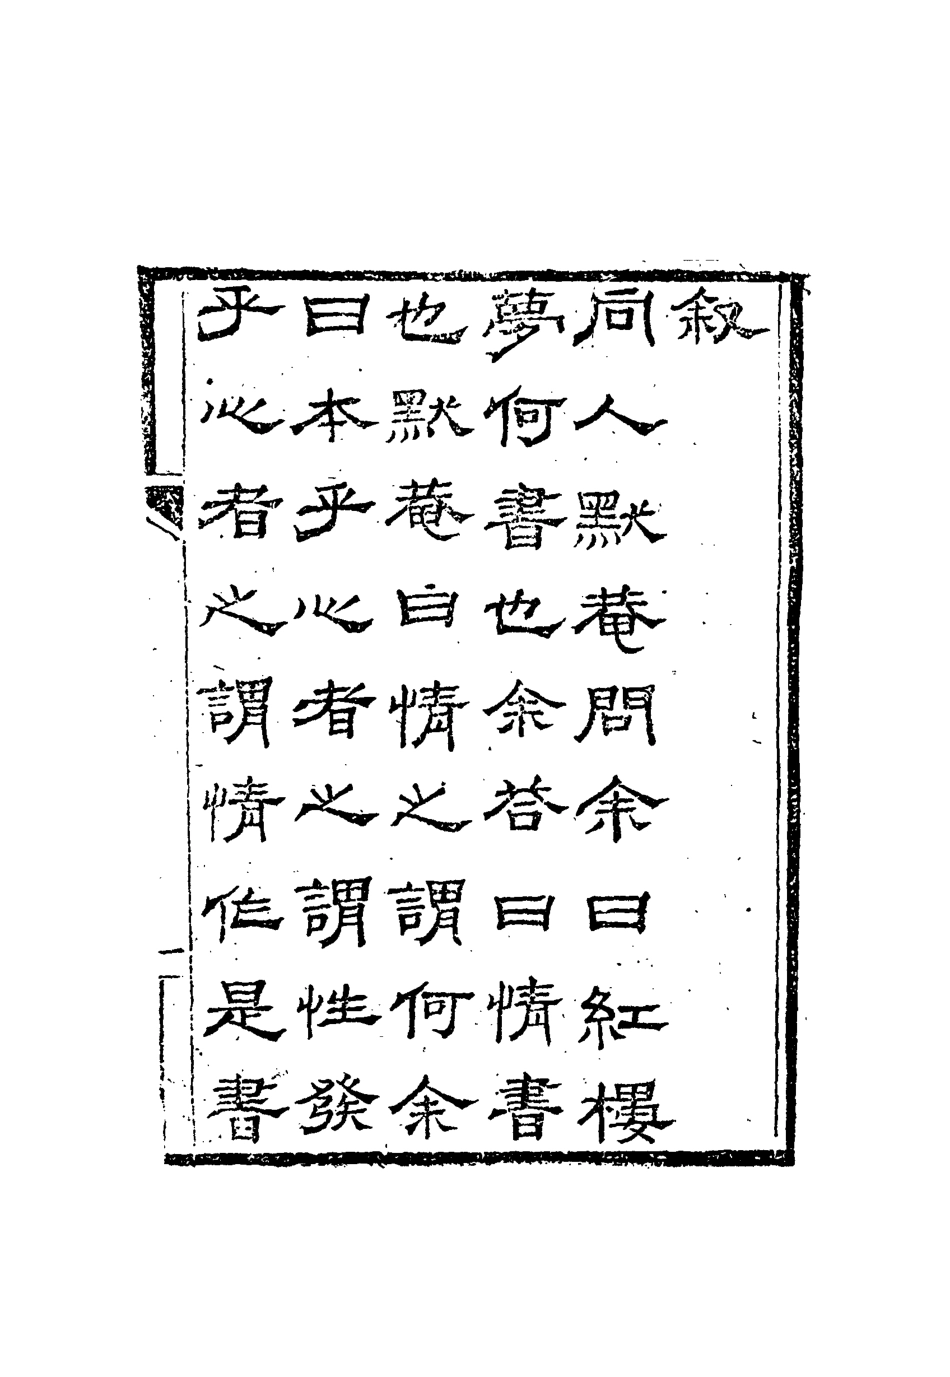 叙
同人默菴問余曰紅樓
夢何書也余答曰情書
也默菴曰情之謂何余
曰本乎心者之謂性發
乎心者之謂情作是書